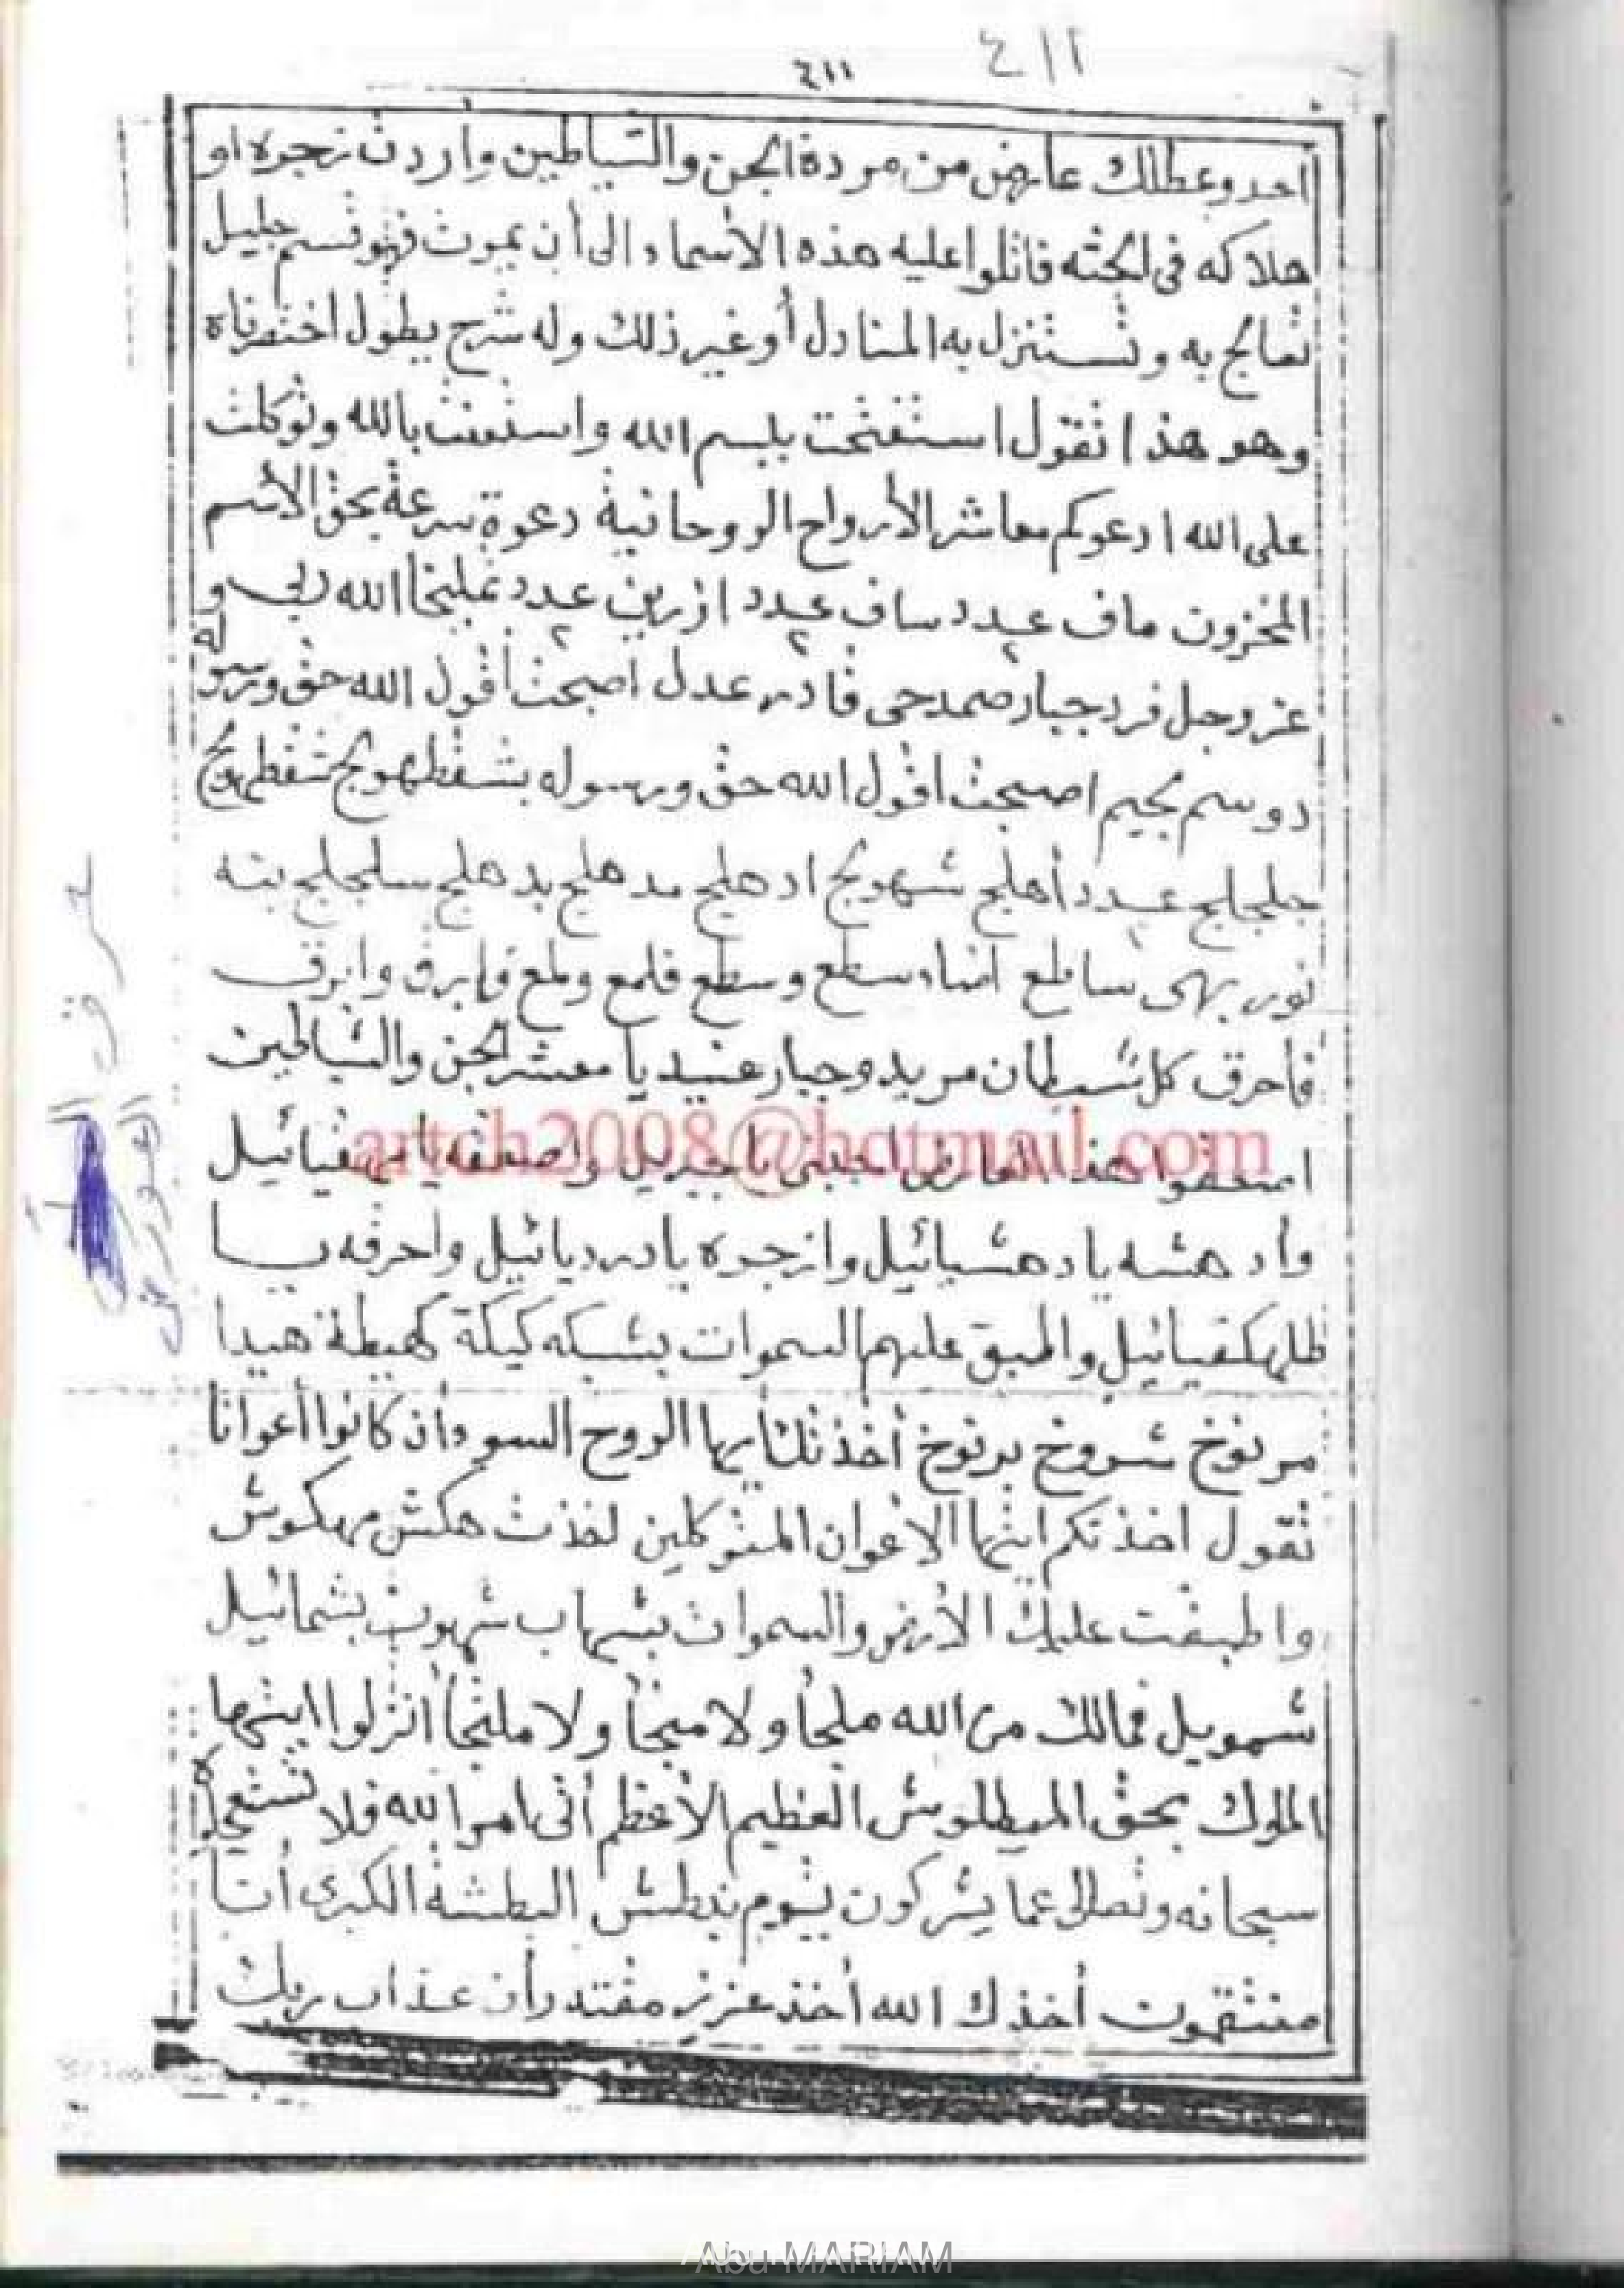 ٤١١
٤١١
احد وعطلك عارض من مردة الجن والشياطين وأردت زجره او
هلاكه في لحته فاتلوا عليه هذه الاسماء الى أن يموت فهو قسم جليل
تعالج به وتستنزل به المنادل أو غير ذلك وله شرح يطول اختصرناه
وهو هذا تقول استفتحت ببسم الله واستعنت بالله وتوكلت
على الله ادعوكم معاشر الأرواح الروحانية دعوة سرعة بحق الاسم
المخزون ماف عدد ساف عدد ازرين عدد تمليخا الله ربي و
٢ ٢ ٢
عز وجل فرد جبار صمد حي قادر عدل اصبحت أقول الله حق ورسوله
دوسم بجيم اصبحت اقول الله حق ورسوله بشقطهويج شقطهويج
جلجلج عدد أهلج شهويج ادهلج مدهلج بدهلج سلجلج بته
نور بهى ساطع اضاء سطع وسطع فلمع ولمع وابرق وابرق
فأحرق كل شيطان مريد وجبار عنيد يا معشر الجن والشياطين
artch2008@hotmail.com
هذا العارض اجبني يا جبريل
وادهشه يا دهشيائيل وازجره يا درديائيل واحرقه يــا
طلهكفيائيل واطبق عليهم السموات بشبكه كيكة كهيطة هيدا
مرنوخ شروخ برنوخ أخذتك أيها الروح السوء وأن كانوا أعوانا
تقول اخذتكم ايتها الاعوان المتوكلين لخذت هكش مهكوش
واطبقت عليك الأرض والسموات بشهاب شهوب بشمائيل
شمويل فمالك من الله ملجأ ولا منجأ ولا ملتجأ انزلوا ايتها
الملوك بحق الميططلوش العظيم الأعظم أتى امر الله فلا تستعجلوه
سبحانه وتعالى عما يشركون يوم نبطش البطشة الكبرى أنا
منتقمون أخذك الله أخذ عزيز مقتدر أن عذاب ربك
حرق
العارض
Abu MARIAM